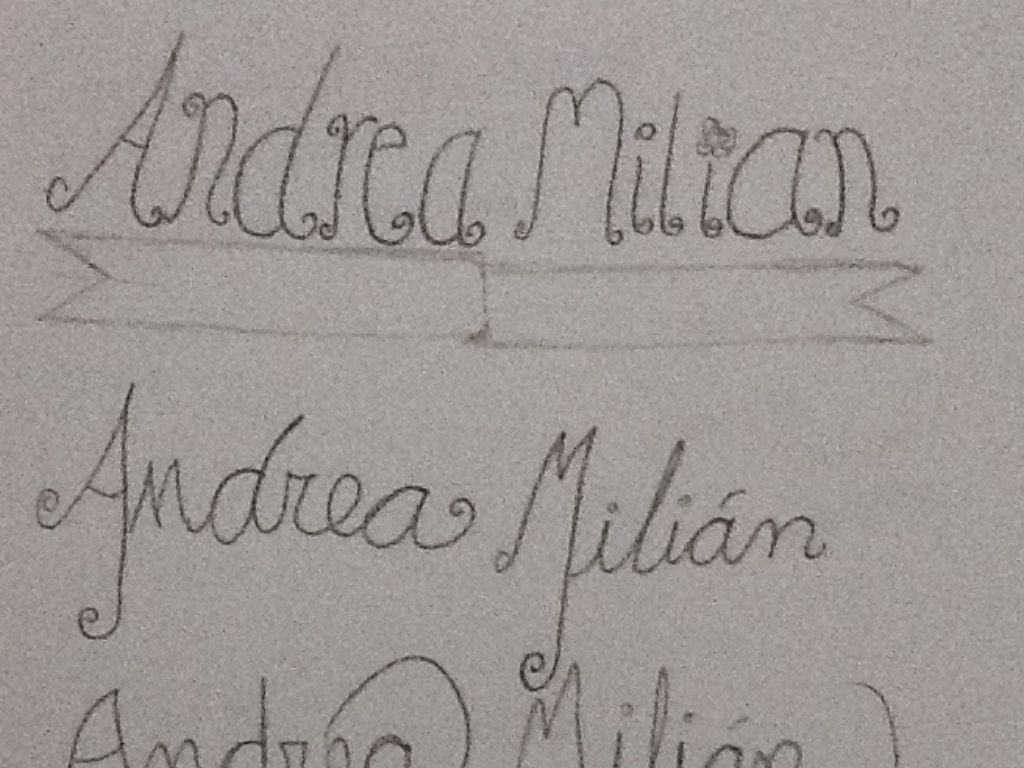 Andrea Milian
Andrea Milián
Andrea Milián